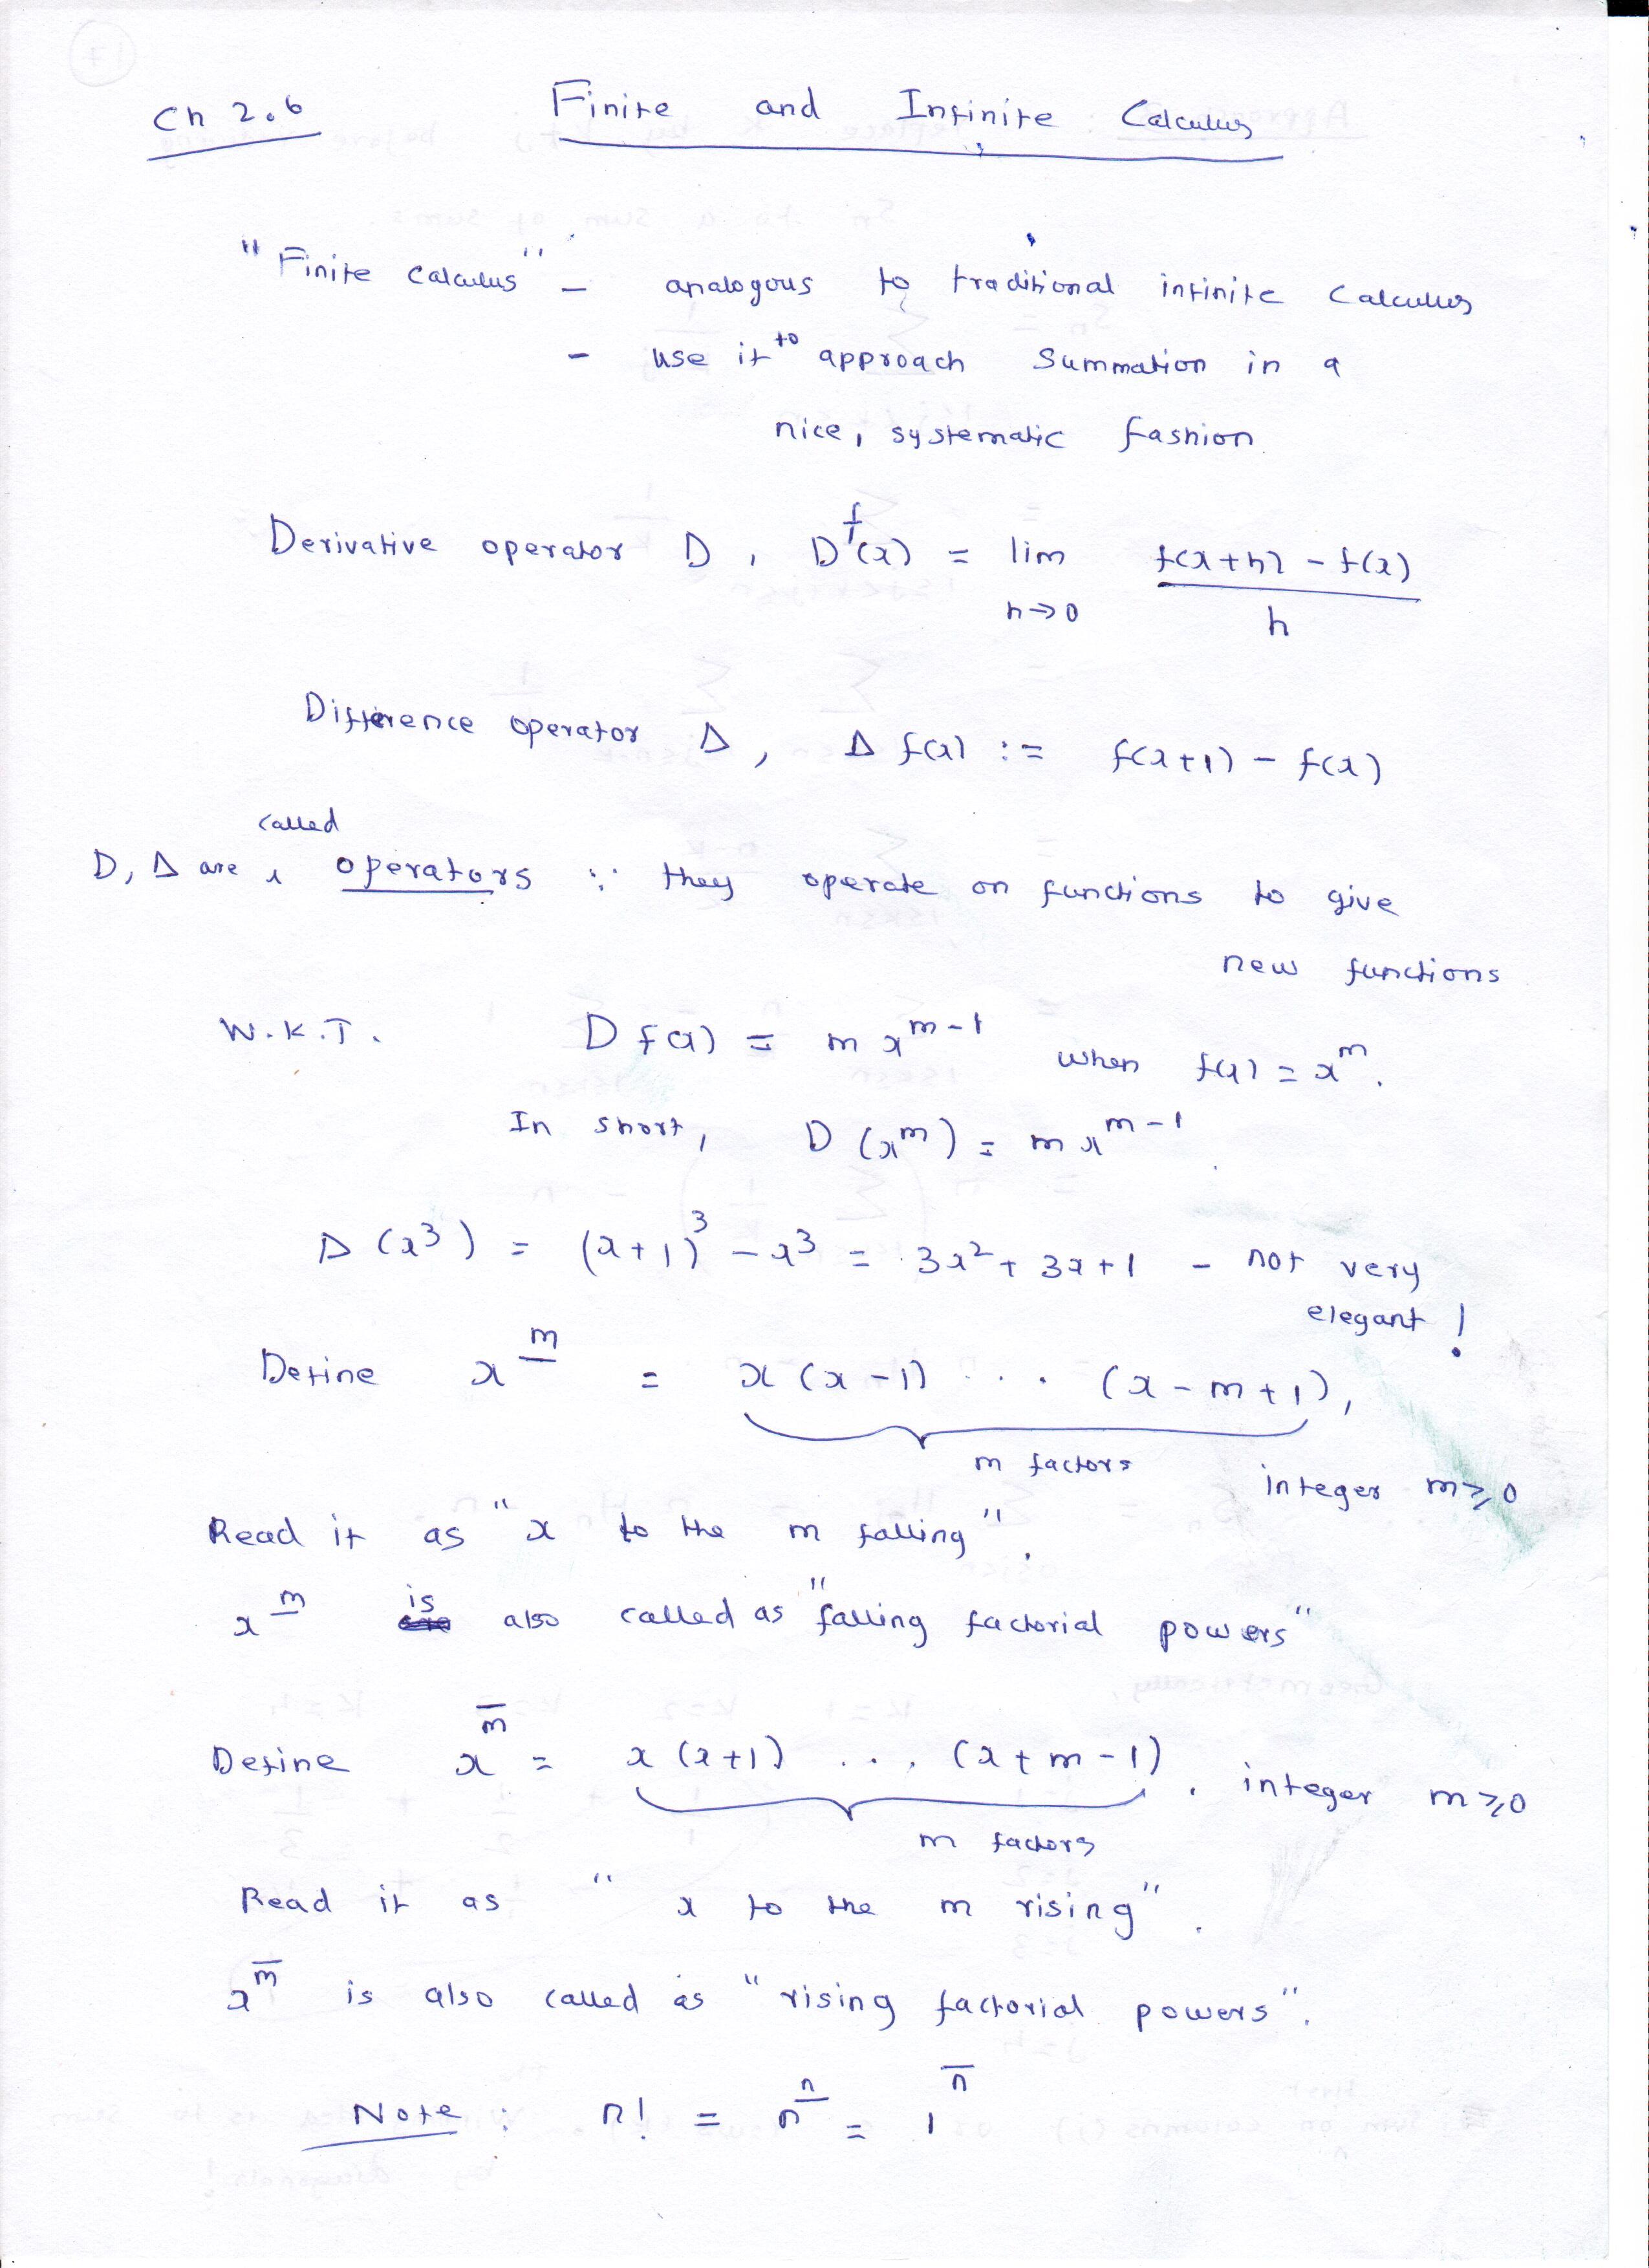 Ch 2.6 Finite and Infinite Calculus
"Finite calculus" – analogous to traditional infinite calculus
– use it to approach summation in a
nice, systematic fashion.
Derivative operator D, D f(x) = lim h→0 (f(x+h) - f(x)) / h
Difference operator Δ, Δ f(x) := f(x+1) - f(x)
D, Δ are called operators ∵ they operate on functions to give
new functions
W.K.T. D f(x) = m x^{m-1} when f(x) = x^m.
In short, D (x^m) = m x^{m-1}.
Δ (x^3) = (x+1)^3 - x^3 = 3x^2 + 3x + 1 - not very
elegant!
Define x^{\underline{m}} = x (x-1) ... (x-m+1),
m factors integer m ⩾ 0
Read it as "x to the m falling".
x^{\underline{m}} is also called as "falling factorial powers"
Define x^{\overline{m}} = x (x+1) ... (x+m-1), integer m ⩾ 0
m factors
Read it as "x to the m rising".
x^{\overline{m}} is also called as "rising factorial powers".
Note: n! = n^{\underline{n}} = 1^{\overline{n}}